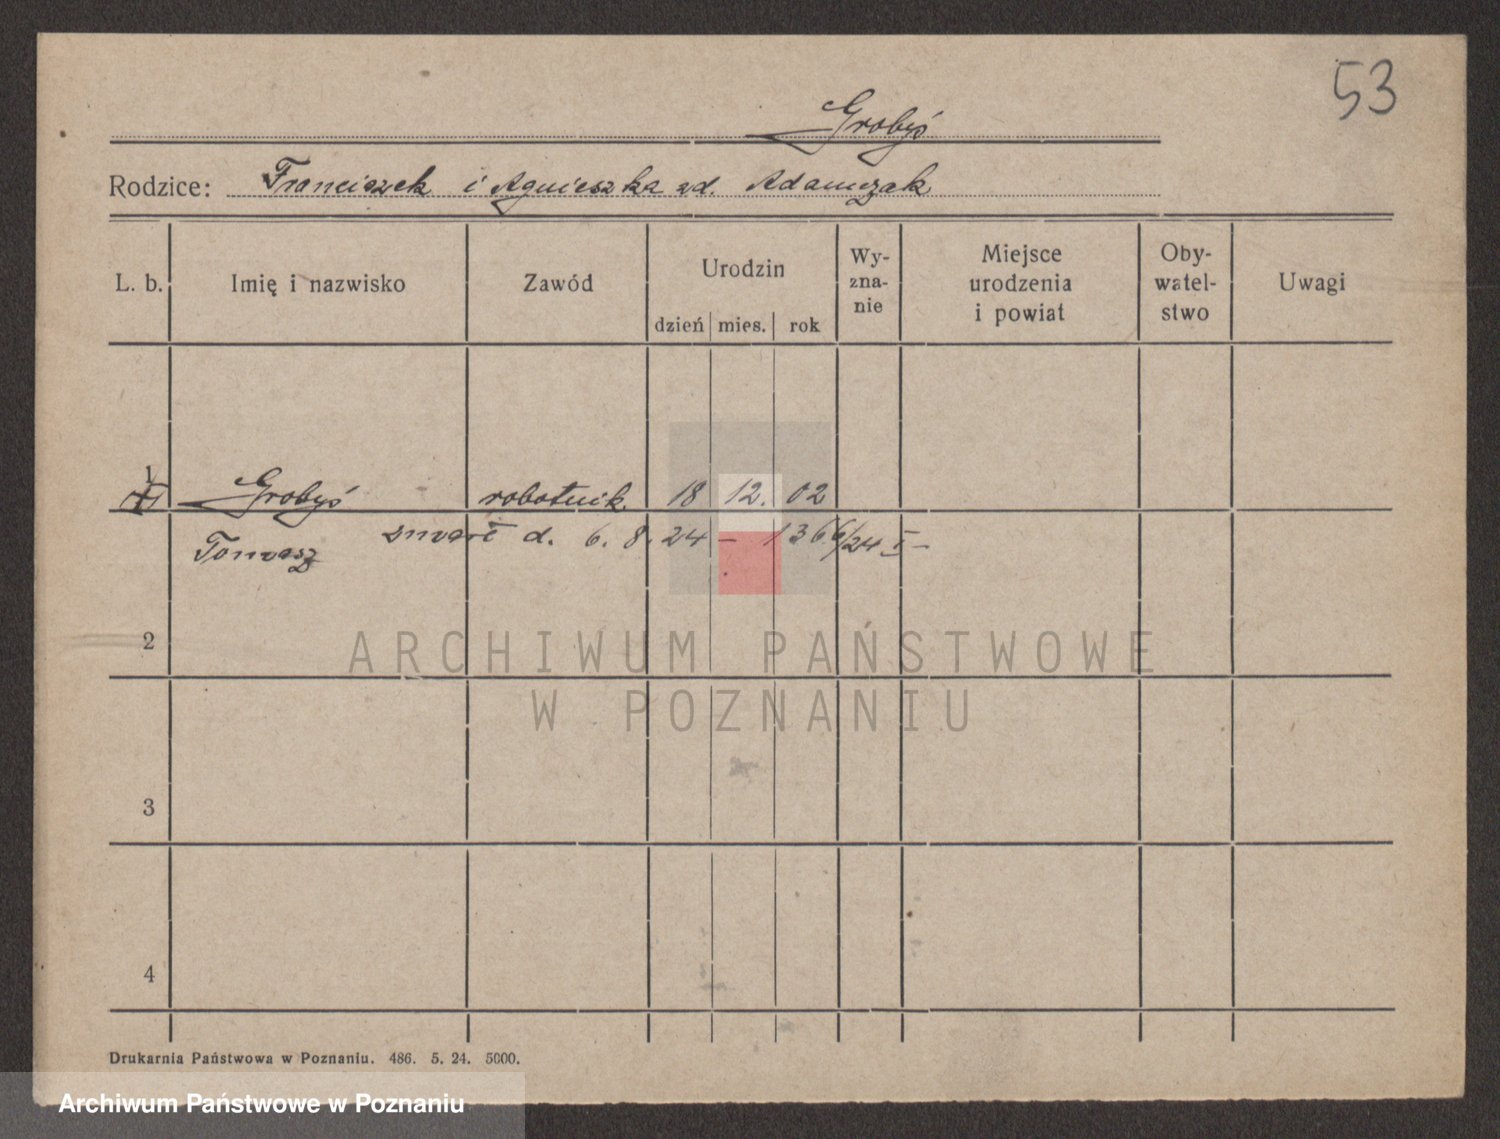 53
Grobyś
Rodzice: Franciszek i Agnieszka zd. Adamczak
L. b. Imię i nazwisko Zawód Urodzin dzień mies. rok Wy-zna-nie Miejsce urodzenia i powiat Oby-watel-stwo Uwagi
1 Grobyś robotnik 18 12. 02
Tomasz zmarł d. 6. 8. 24 – 1366/24 I –
2
ARCHIWUM PAŃSTWOWE
W POZNANIU
3
4
Drukarnia Państwowa w Poznaniu. 486. 5. 24. 5000.
Archiwum Państwowe w Poznaniu